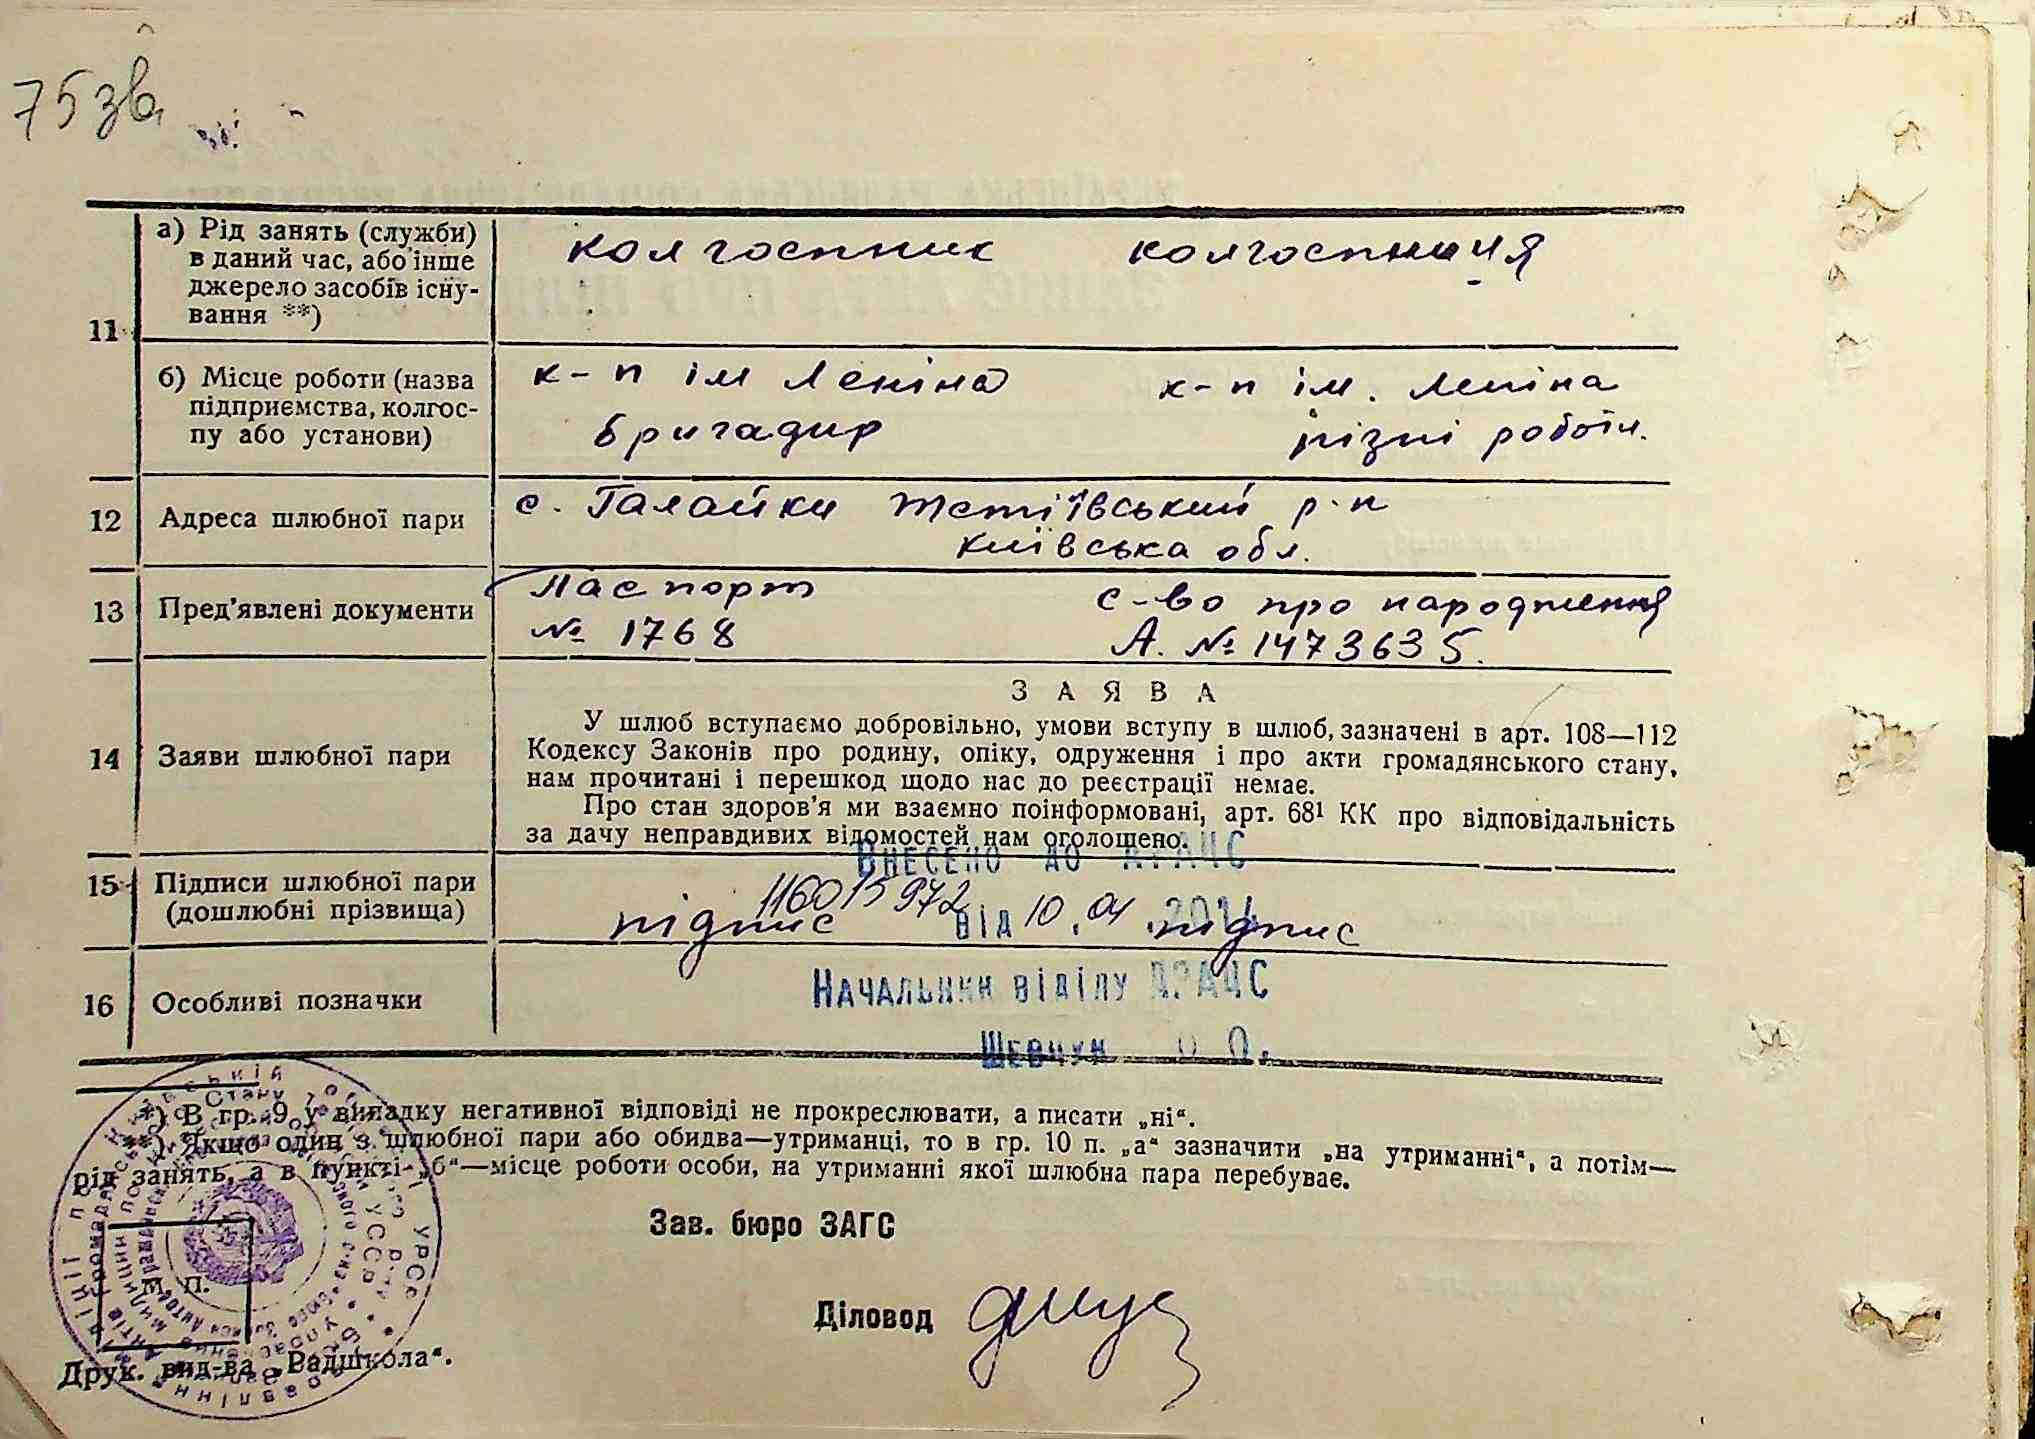 75 зв.
11
а) Рід занять (служби)
в даний час, або інше
джерело засобів існу-
вання **)
колгоспник колгоспниця
б) Місце роботи (назва
підприємства, колгос-
пу або установи)
к-п ім Леніна к-п ім. Леніна
бригадир різні роботи.
12 Адреса шлюбної пари
с. Галайки Тетіївський р-н
Київська обл.
13 Пред'явлені документи
Паспорт с-во про народження
№ 1768 А. № 1473635.
14 Заяви шлюбної пари
ЗАЯВА
У шлюб вступаємо добровільно, умови вступу в шлюб, зазначені в арт. 108—112
Кодексу Законів про родину, опіку, одруження і про акти громадянського стану,
нам прочитані і перешкод щодо нас до реєстрації немає.
Про стан здоров'я ми взаємно поінформовані, арт. 68¹ КК про відповідальність
за дачу неправдивих відомостей нам оголошено.
Внесено до ДРАЦС
15 Підписи шлюбної пари
(дошлюбні прізвища)
116015972
підпис від 10.04. підпис
16 Особливі позначки
Начальник відділу ДРАЦС
Шевчук О.
*) В гр. 9 у випадку негативної відповіді не прокреслювати, а писати „ні“.
**) Якщо один з шлюбної пари або обидва—утриманці, то в гр. 10 п. „а“ зазначити „на утриманні“, а потім—
рід занять, а в пункті „б“—місце роботи особи, на утриманні якої шлюбна пара перебуває.
Зав. бюро ЗАГС
М. П.
Діловод
Друк. вид-ва „Радшкола“.